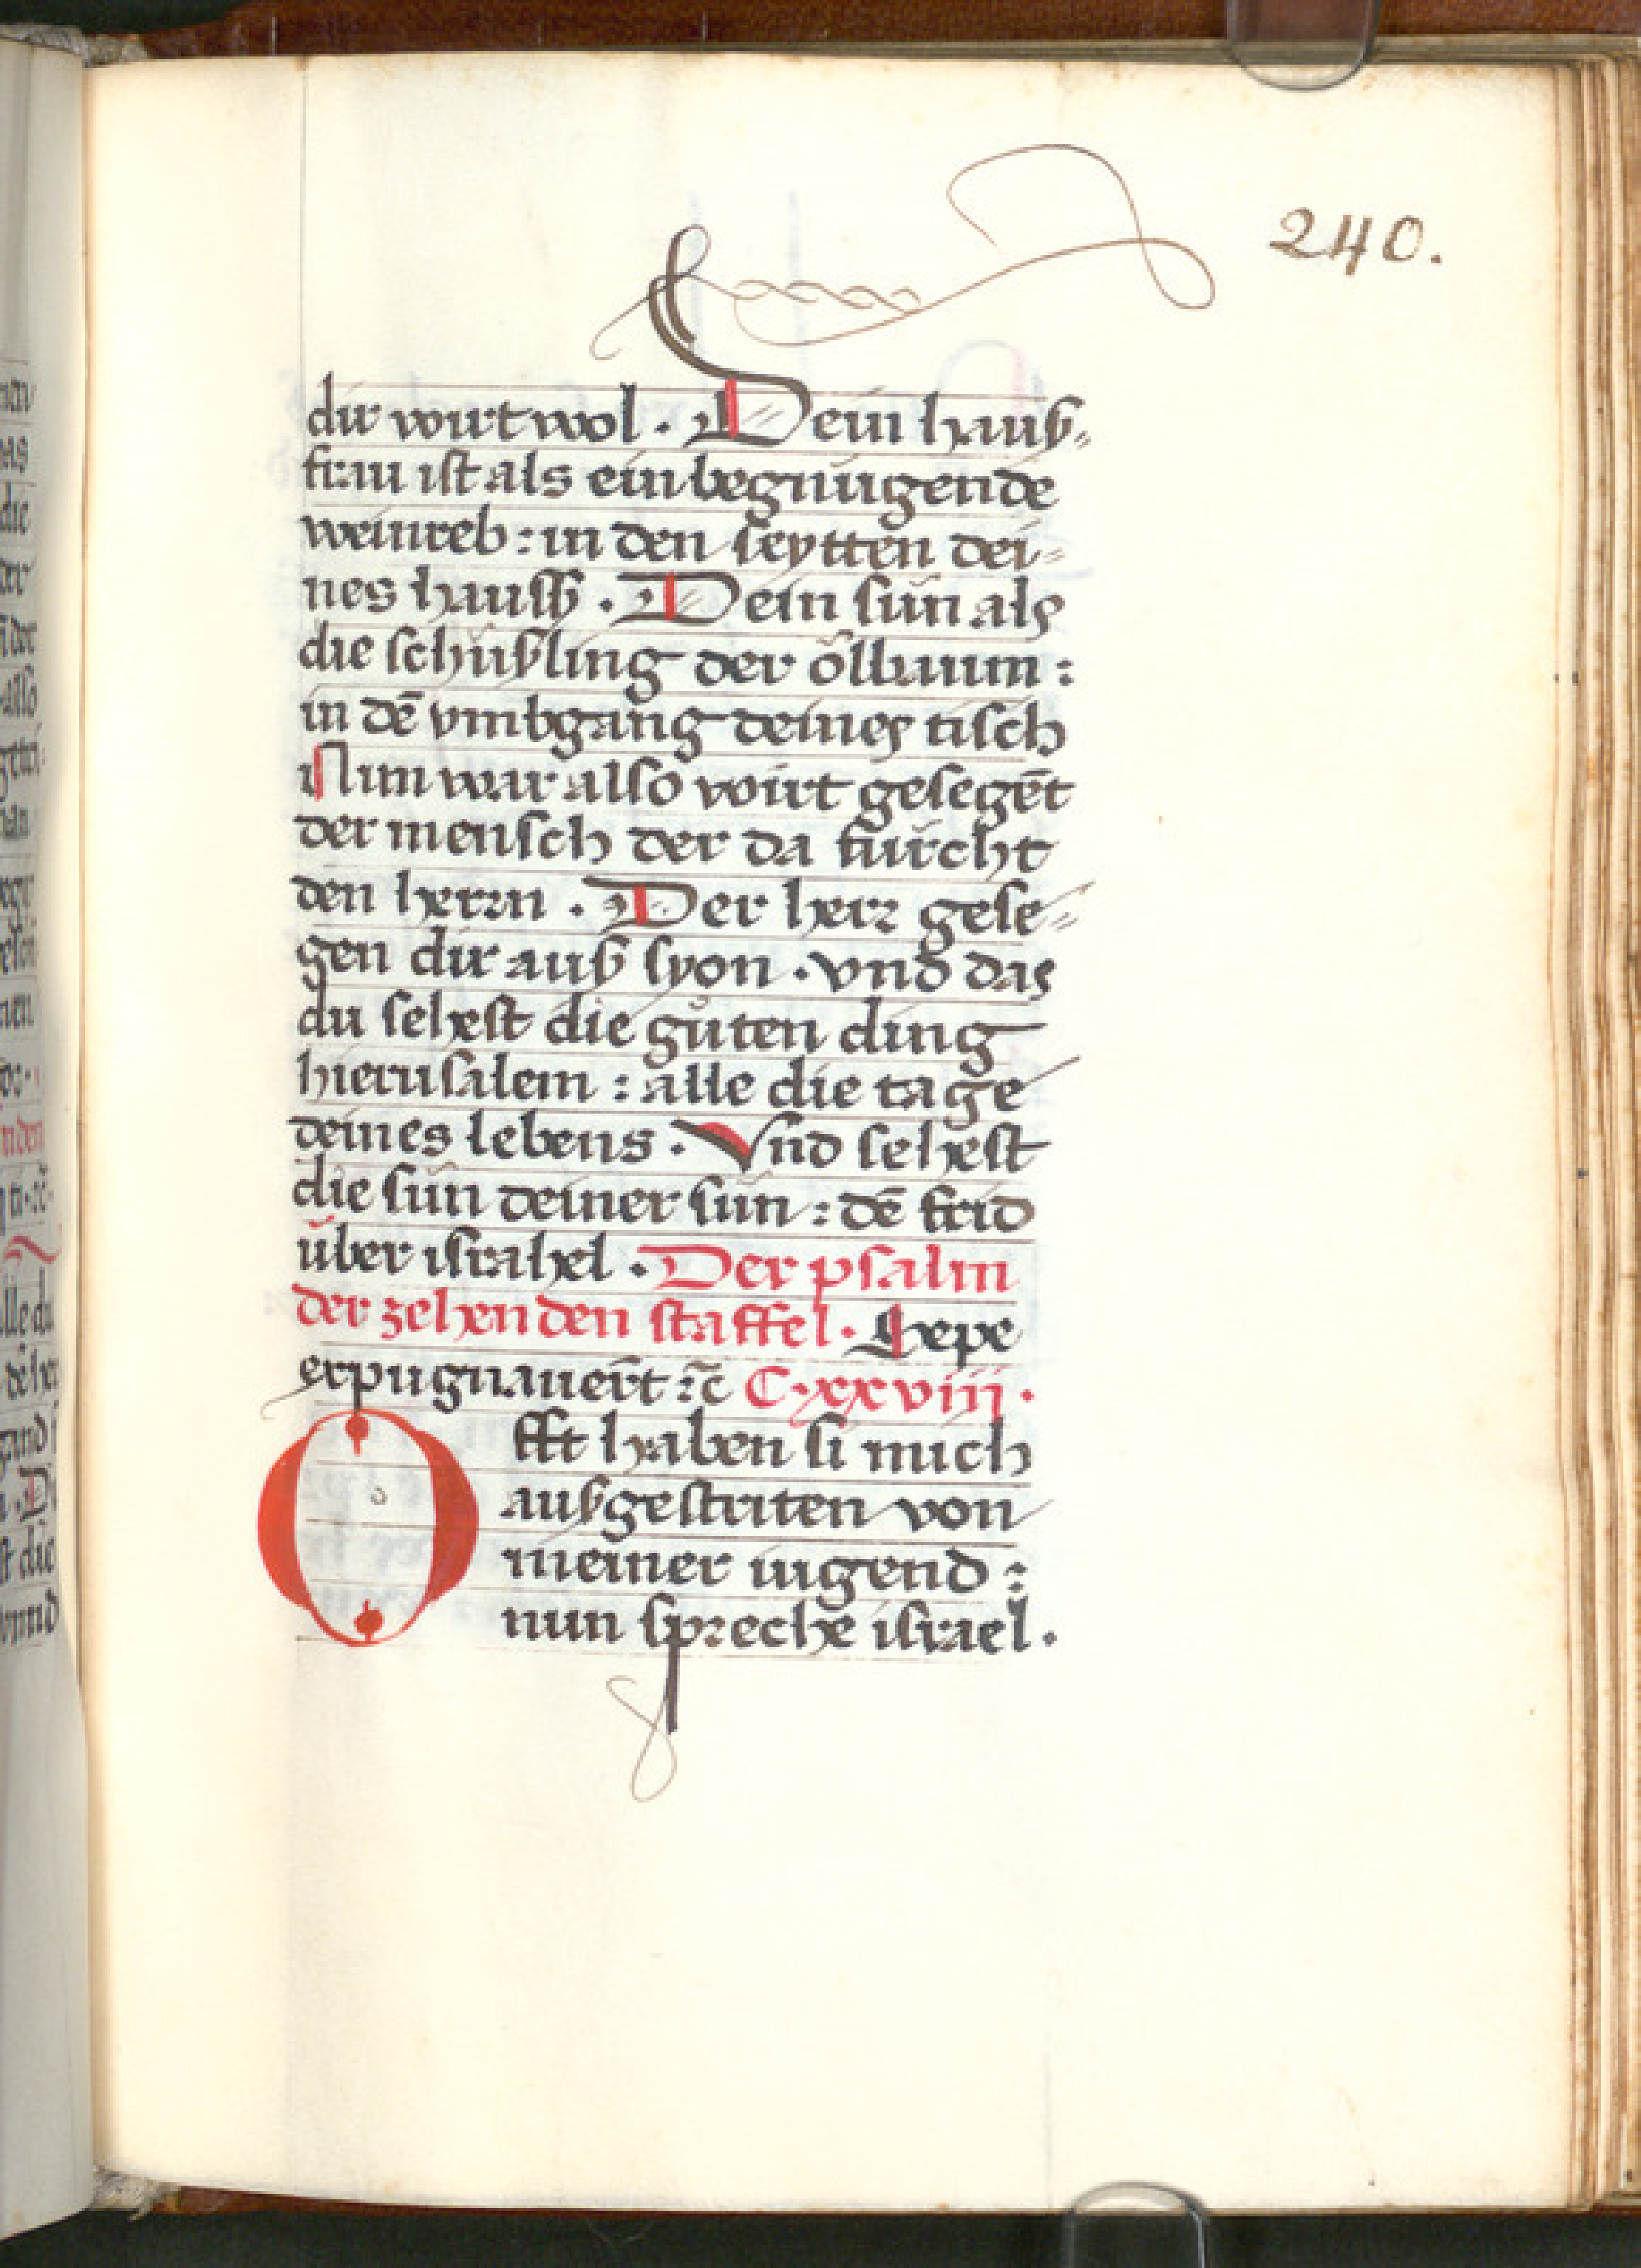 240.
dir wirt wol . Dein hauß⸗
frau ist als ein begnügende
weinreb : in den seytten dei⸗
nes hausß . Dein sün als
die schüßling der ölbaum :
in dē vmbgang deines tisch
Nim war also wirt gesegēt
der mensch der da fürcht
den herrn . Der herr gese⸗
gen dir auß syon . vnd das
du sehest die gůten ding
hierusalem : alle die tage
deines lebens . Vnd sehest
die sün deiner sün : dē frid
über israhel . Der psalm
der zehenden staffel . Sepe
expugnauer̄t ⁊c̄ Cxxviii .
Offt haben si mich
außgestriten von
meiner iugend :
nun spreche israel .